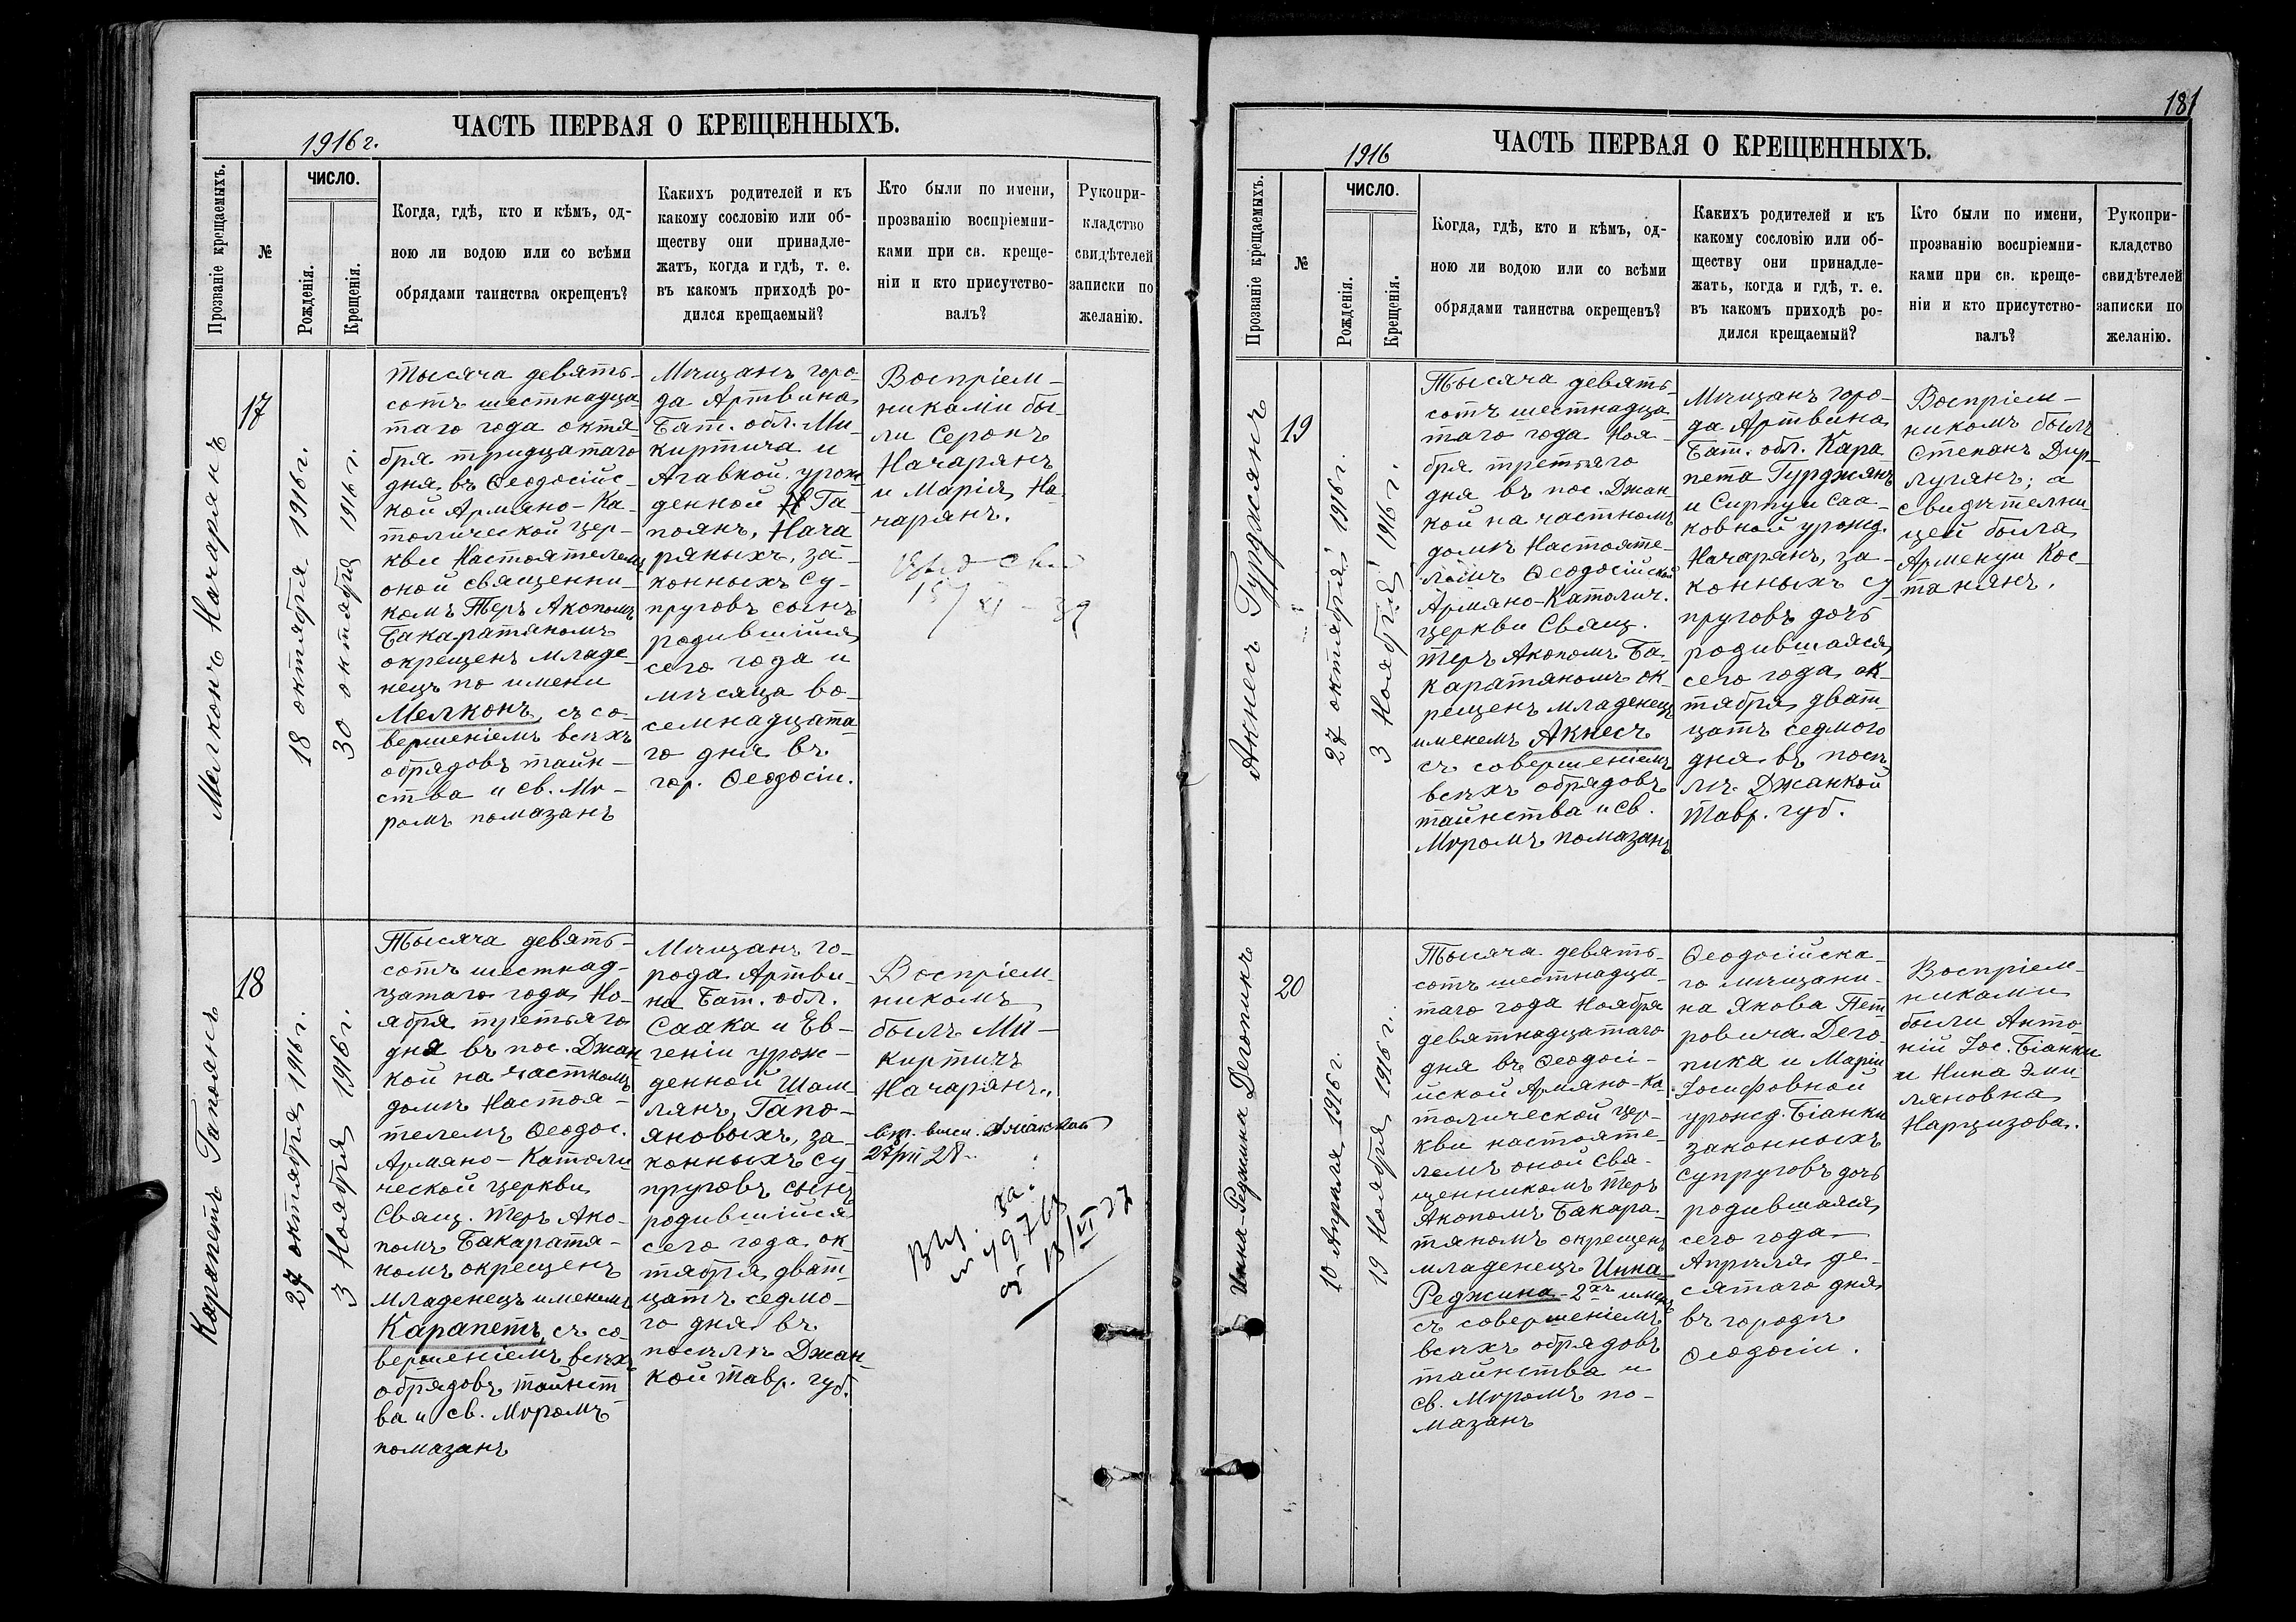 ЧАСТЬ ПЕРВАЯ О КРЕЩЕННЫХЪ.
1916 г.
Прозваніе крещаемыхъ.
№
ЧИСЛО.
Рожденія.
Крещенія.
Когда, гдѣ, кто и кѣмъ, од-
ною ли водою или со всѣми
обрядами таинства окрещенъ?
Какихъ родителей и къ
какому сословію или об-
ществу они принадле-
жатъ, когда и гдѣ, т. е.
въ какомъ приходѣ ро-
дился крещаемый?
Кто были по имени,
прозванію воспріемни-
ками при св. креще-
ніи и кто присутство-
валъ?
Рукопри-
кладство
свидѣтелей
записки по
желанію.
Мелконъ Начарянъ
17
18 октября 1916 г.
30 октября 1916 г.
Тысяча девять-
сотъ шестнадца
таго года октя
бря тридцатаго
дня въ Ѳеодосійс-
кой Армяно-Ка-
толической цер-
кви Настоятелемъ
оной священни-
комъ Теръ Акопомъ
Бакаратяномъ
окрещенъ младе-
нецъ по имени
Мелконъ, съ со-
вершеніемъ всѣхъ
обрядовъ таин-
ства и св. Мѵ-
ромъ помазанъ
Мѣщанъ горо-
да Артвина
Бат. обл. Ми-
киртича и
Агавной урож
денной Га-
поянъ, Нача
ряныхъ, за-
конныхъ су-
пруговъ сынъ
родившійся
сего года и
мѣсяца во-
семнадцата
го дня въ
гор. Ѳеодосіи.
Воспріем-
никами бы-
ли Серопъ
Начарянъ
и Марія На-
чарянъ.
Карапетъ Гапоянъ
18
27 октября 1916 г.
3 Ноября 1916 г.
Тысяча девять-
сотъ шестнад-
цатаго года Но-
ября третьяго
дня въ пос. Джан
кой на частномъ
домѣ Настоя-
телемъ Ѳеодос.
Армяно-Католи
ческой церкви
Свящ. Теръ Ако-
помъ Бакаратя-
номъ окрещенъ
младенецъ именемъ
Карапетъ, съ со-
вершеніемъ всѣхъ
обрядовъ таинст
ва и св. Мѵромъ
помазанъ
Мѣщанъ го-
рода Артви-
на Бат. обл.
Саака и Ев-
геніи урож-
денной Шам
лянъ, Гапо-
яновыхъ, за-
конныхъ су-
пруговъ сынъ
родившійся
сего года ок
тября двад-
цать седмо-
го дня въ
поселкѣ Джан-
кой Тавр. губ.
Воспріем-
никомъ
былъ Ми-
киртичъ
Начарянъ.
181
ЧАСТЬ ПЕРВАЯ О КРЕЩЕННЫХЪ.
1916
Прозваніе крещаемыхъ.
№
ЧИСЛО.
Рожденія.
Крещенія.
Когда, гдѣ, кто и кѣмъ, од-
ною ли водою или со всѣми
обрядами таинства окрещенъ?
Какихъ родителей и къ
какому сословію или об-
ществу они принадле-
жатъ, когда и гдѣ, т. е.
въ какомъ приходѣ ро-
дился крещаемый?
Кто были по имени,
прозванію воспріемни-
ками при св. креще-
ніи и кто присутство-
валъ?
Рукопри-
кладство
свидѣтелей
записки по
желанію.
Акнесъ Гурджянъ
19
27 октября 1916 г.
3 Ноября 1916 г.
Тысяча девять
сотъ шестнадца
таго года Ноя-
бря третьяго
дня въ пос. Джан-
кой на частномъ
домѣ Настояте-
лемъ Ѳеодосійской
Армяно-Католич.
церкви Свящ.
Теръ Акопомъ Ба-
каратяномъ ок-
рещенъ младенецъ
именемъ Акнесъ
съ совершеніемъ
всѣхъ обрядовъ
таинства и св.
Мѵромъ помазанъ
Мѣщанъ горо-
да Артвина
Бат. обл. Кара
пета Гурджянъ
и Сирпуи Саа-
ковной урожд.
Начарянъ, за-
конныхъ су
пруговъ дочь
родившаяся
сего года ок-
тября двад-
цать седмого
дня въ посел
кѣ Джанкой
Тавр. губ.
Воспріем-
никомъ былъ
Степанъ Дир-
лугянъ; а
свидѣтельни
цей была
Арменуи Кос-
танянъ.
Инна-Реджина Дегопикъ
20
10 Апрѣля 1916 г.
19 Ноября 1916 г.
Тысяча девять-
сотъ шестнадца-
таго года Ноября
девятнадцатаго
дня въ Ѳеодосі-
йской Армяно-Ка-
толической цер-
кви настояте-
лемъ оной свя-
щенникомъ Теръ
Акопомъ Бакара-
тяномъ окрещенъ
младенецъ Инна
Реджина - 2хъ именъ
съ совершеніемъ
всѣхъ обрядовъ
таинства и
св. Мѵромъ по-
мазанъ
Ѳеодосійска-
го мѣщани-
на Якова Пет
ровича Дего-
пика и Маріи
Іосифовной
урожд. Біанки
законныхъ
супруговъ дочь
родившаяся
сего года
Апрѣля де-
сятаго дня
въ городѣ
Ѳеодосіи.
Воспріем-
никами
были Анто-
ній Іос. Біанки
и Нина Эми-
ляновна
Нарцизова.